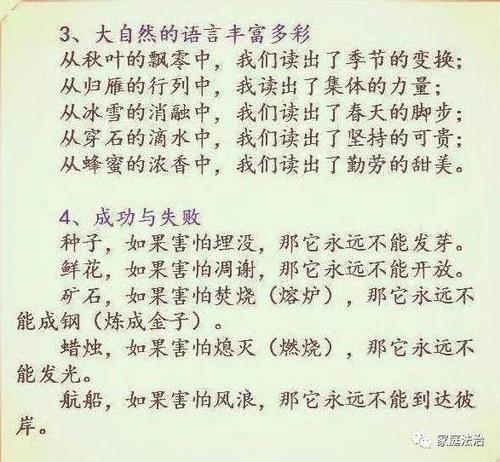 3、大自然的语言丰富多彩
从秋叶的飘零中，我们读出了季节的变换；
从归雁的行列中，我读出了集体的力量；
从冰雪的消融中，我们读出了春天的脚步；
从穿石的滴水中，我们读出了坚持的可贵；
从蜂蜜的浓香中，我们读出了勤劳的甜美。
4、成功与失败
种子，如果害怕埋没，那它永远不能发芽。
鲜花，如果害怕凋谢，那它永远不能开放。
矿石，如果害怕焚烧（熔炉），那它永远不
能成钢（炼成金子）。
蜡烛，如果害怕熄灭（燃烧），那它永远不
能发光。
航船，如果害怕风浪，那它永远不能到达彼
岸。
家庭法治